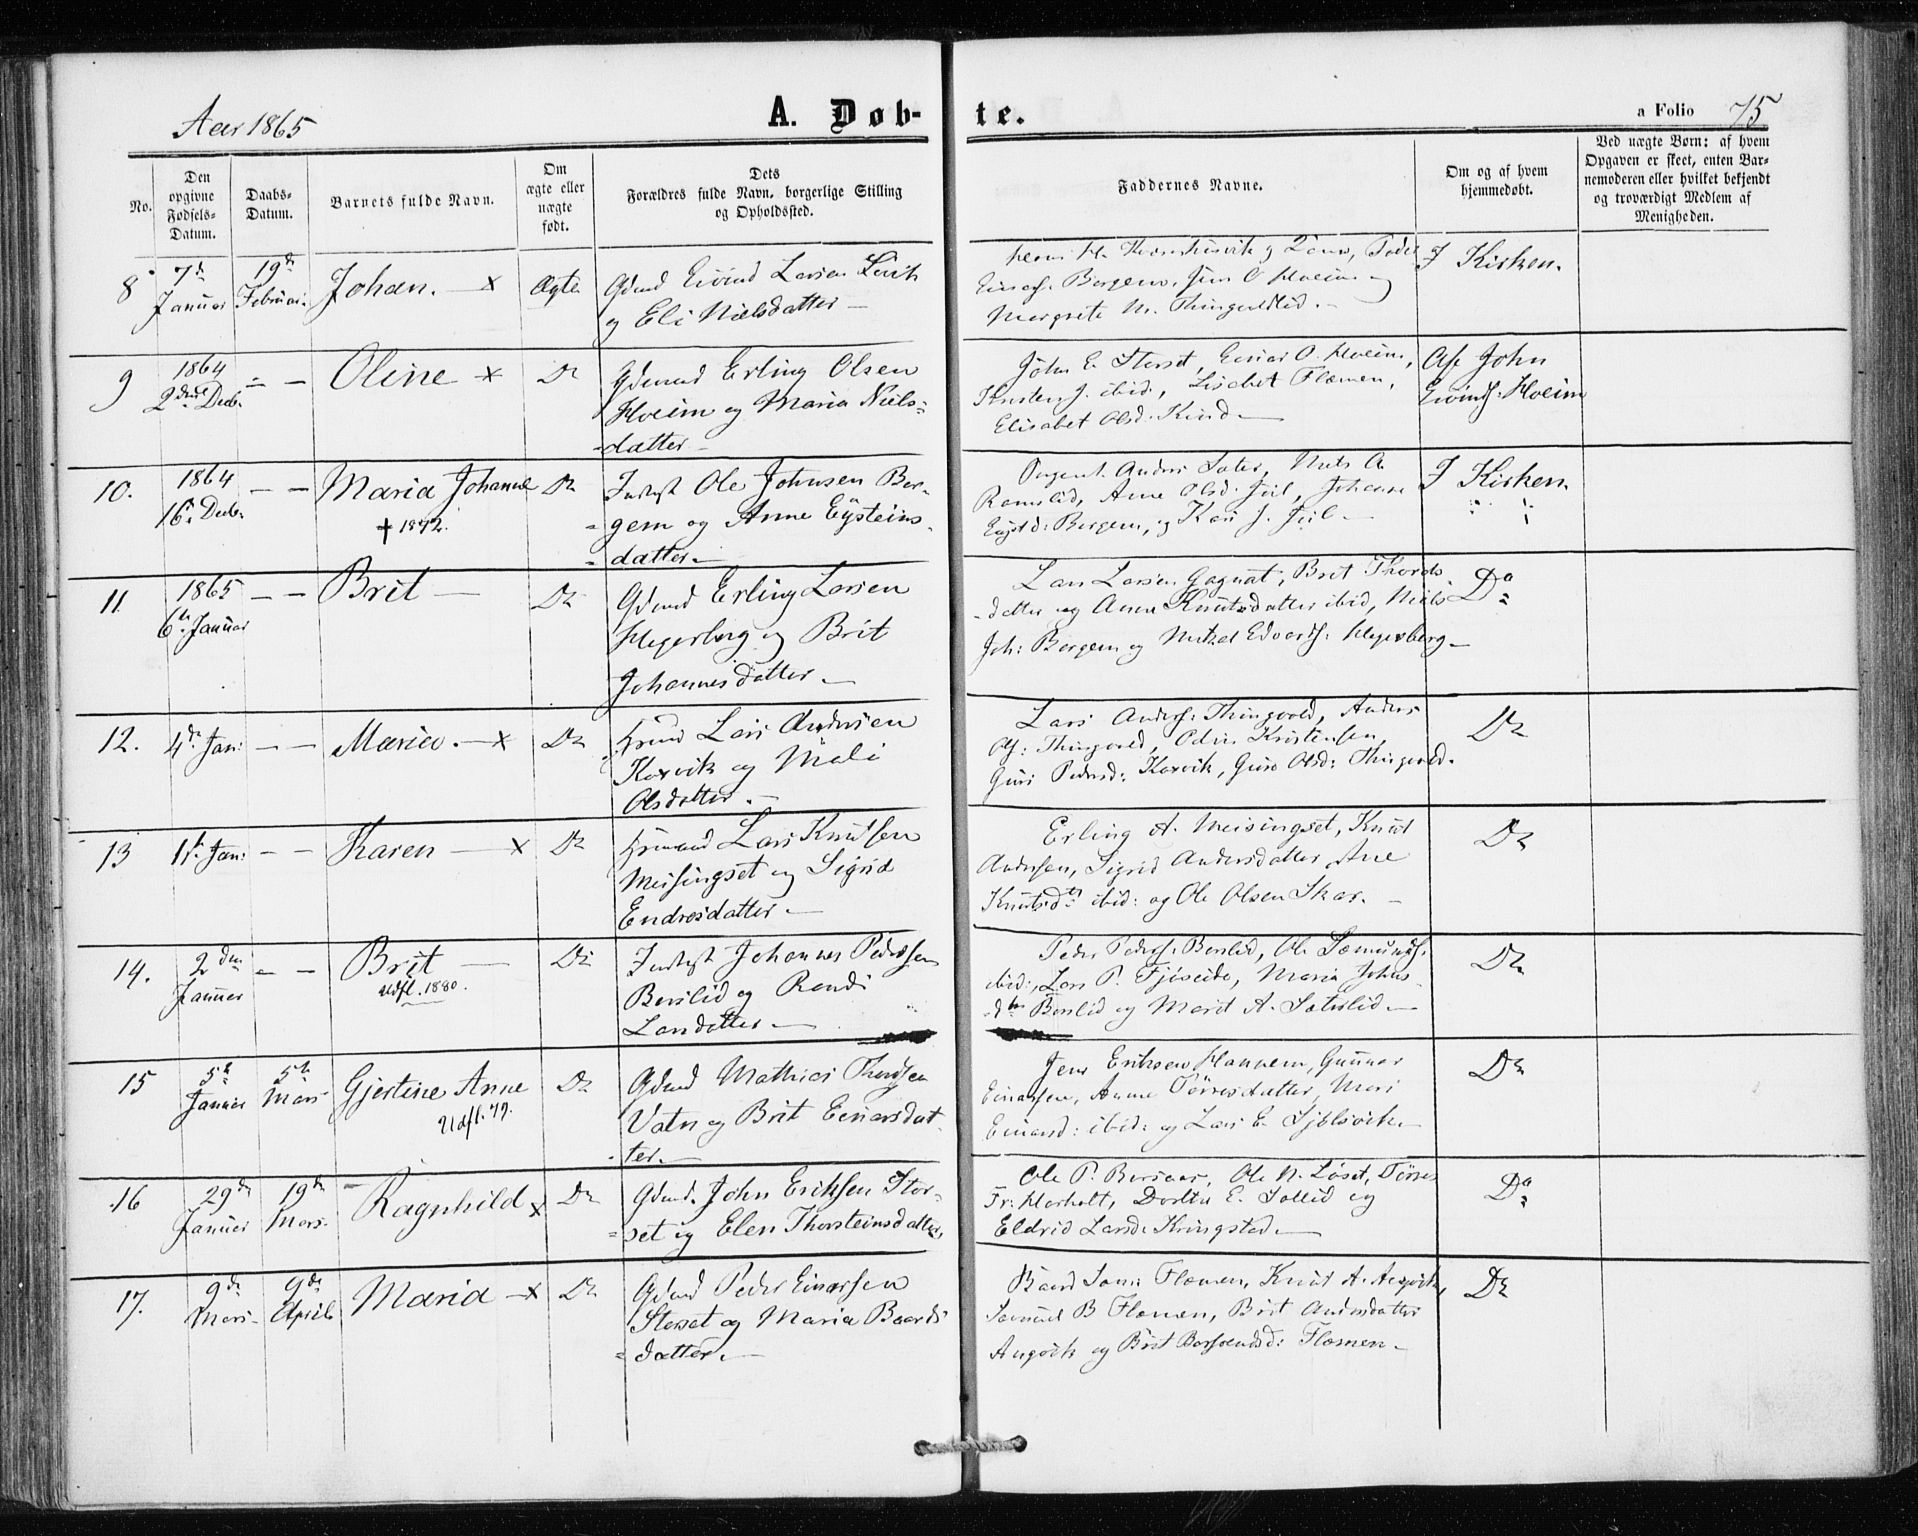 Aar 1865
A. Døb-
te.
a Folio 75
No.
Den
opgivne
Fødsels-
Datum.
Daabs-
Datum.
Barnets fulde Navn.
Om
ægte eller
uægte
født.
Dets
Forældres fulde Navn, borgerlige Stilling
og Opholdssted.
Faddernes Navne.
Om og af hvem
hjemmedøbt.
Ved uægte Børn: af hvem
Opgaven er skeet, enten Bar-
nemoderen eller hvilket bekjendt
og troværdigt Medlem af
Menigheden.
8
7de
Januar
19de
Februar.
Johan. — x
Ægte
Gdmd Eivind Larsen
og Eli Nielsdatter —
Bergem, O Hoeim og
Margrete N. Thingvoldlid. —
I Kirken.
9
1864
2den Decb.
— —
Oline x
Do
Gdmand Erling Olsen
Hoeim og Maria Niels=
=datter —
John E. Storset, Einar O. Hoeim,
Kristen J. ibid, Lisabet Flemen,
Elisabet Olsd. —
Af John
Eivinds: Hoeim
10.
1864
16. Decb.
— —
Maria Johanne
+ 1872.
Do
Inderst Ole Johnsen Ber-
=gem og Anne Eysteins-
=datter. —
Anders Sater, Niels A.
Ramslid, Anne Olsd. Jul, Johanne
Eystd: Bergem, og Kari J. Juul —
I Kirken.
11
1865
6te Januar
— —
Brit —
Do
Gdmd Erling Larsen
Hegerberg og Brit
Johannesdatter. —
Lars Larsen Gagnat, Brit Thords-
=datter og Anne Knutsdatter ibid, Niels
Joh: Bergem og Mikkel Edvards: Hegerberg —
Do
12.
4de Jan:
— —
Maria. — x
Do
Husmd Lars Andersen
Korvik og Mali
Olsdatter. —
Lars Anders: Thingvold, Anders
Ols: Thingvold, Peder Kristensen,
Guri Pedersd: Korvik, Guro Olsd: Thingvold.
Do
13
1ste Jan:
— —
Karen — x
Do
Husmand Lars Knutsen
Meisingset og Sigrid
Endresdatter. —
Erling A. Meisingset, Knut
Andersen, Sigrid Andersdatter, Ane
Knutsdtr ibid: og Ole Olsen Skar. —
Do
14.
2den
Januar
— —
Brit —
Udfl. 1880.
Do
Inderst Johannes Pedersen
Berslid og Randi
Larsdatter —
Peder Peders: Berslid, Ole Sæmunds:
ibid:, Lars P. Fjøseide, Maria Johns-
=dtr Berslid og Marit A. Saterlid —
Do
15
5te
Januar
5te
Mars
Gjertine Anne
Udfl. 79.
Do
Gdmd Mathias Thordsen
Vatn og Brit Einarsdat-
-ter. —
Jens Eriksen Hannem, Gunnar
Einarsen, Anne Torresdatter, Mari
Einarsd: ibid: og Lars E. —
Do
16
29de
Januar
19de
Mars.
Ragnhild x
Do
Gdmd. John Eriksen Stor-
=set og Elen Thorsteinsdatter,
Ole P. Bersaas, Ole N. Løset, Torres
Fr: Horholt, Dorthe E. Sollid og
Eldrid Larsd. Kringstad —
Do
17.
9de
Mars
9de
April
Maria — x
Do
Gdmd Peder Einarsen
Storset og Maria Baards
=datter. —
Baard Sam: Flemen, Knut A. Angvik,
Samuel B Flemen, Brit Andersdatter
Angvik og Brit Flemen —
Do